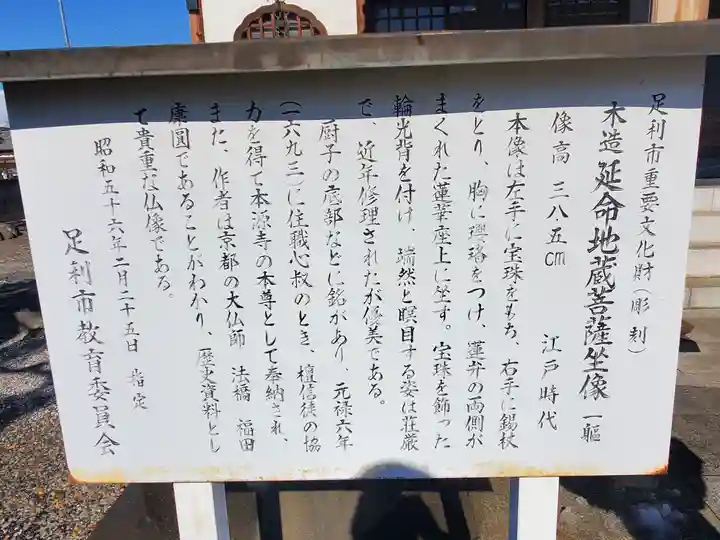 足利市重要文化財（彫刻）
木造 延命地蔵菩薩坐像 一軀
像高 三八五cm 江戸時代
本像は左手に宝珠をもち、右手に錫杖
をとり、胸に瓔珞をつけ、蓮弁の両側が
まくれた蓮華座上に坐す。宝珠を飾った
輪光背を付け、端然と瞑目する姿は荘厳
で、近年修理されたが優美である。
厨子の底部などに銘があり、元禄六年
（一六九三）に住職心叔のとき、檀信徒の協
力を得て本源寺の本尊として奉納され、
また、作者は京都の大仏師 法橋 福田
康圓であることがわかり、歴史資料とし
て貴重な仏像である。
昭和五十六年二月二十五日 指定
足利市教育委員会